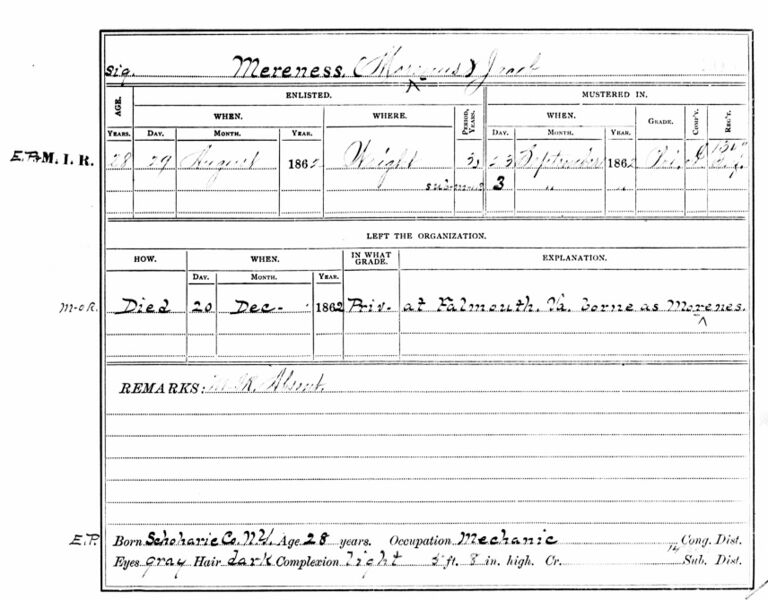 Sig. Mereness, (Morenus) Jacob
ENLISTED. MUSTERED IN.
AGE. WHEN. WHERE. PERIOD, YEARS. WHEN. GRADE. COMP'Y. REG'T.
YEARS. DAY. MONTH. YEAR. DAY. MONTH. YEAR.
E.P. M. I. R. 28 29 August 1862 Wright 3 23 September 1862
3 " "
LEFT THE ORGANIZATION.
HOW. WHEN. IN WHAT GRADE. EXPLANATION.
DAY. MONTH. YEAR.
M-o R. Died 20 Dec- 1862 Priv- at Falmouth, Va. Borne as Morenes.
REMARKS: Absent.
E.P. Born Schoharie Co. N.Y. Age 28 years. Occupation Mechanic Cong. Dist.
Eyes gray Hair dark Complexion light 5 ft. 8 in. high. Cr. Sub. Dist.